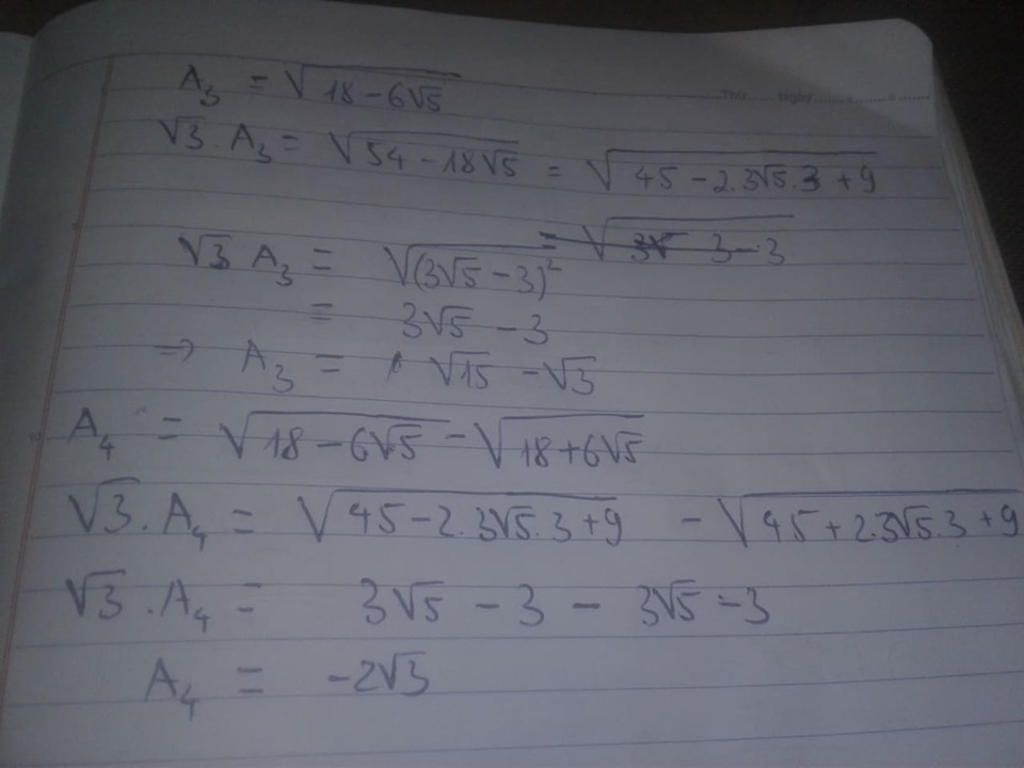 Thứ ....... Ngày ....... / .......
A₃ = √(18 - 6√5)
√3 . A₃ = √(54 - 18√5) = √(45 - 2.3√5.3 + 9)
= √(3√ 3 - 3
√3 A₃ = √(3√5 - 3)²
= 3√5 - 3
⇒ A₃ = √15 - √3
A₄ = √(18 - 6√5) - √(18 + 6√5)
√3 . A₄ = √(45 - 2.3√5.3 + 9) - √(45 + 2.3√5.3 + 9)
√3 . A₄ = 3√5 - 3 - 3√5 - 3
A₄ = -2√3